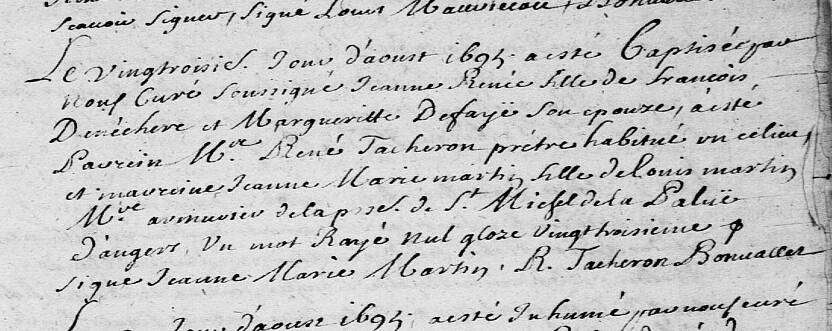 scavoir signer, signé Louis
Le vingtroisie. Jour d'aoust 1695. a esté Baptisée par
nous Curé soussigné Jeanne Renée fille de francois
Denéchere et Margueritte Defaÿe son epouze, a esté
Parein Mre. René Tacheron prétre habitué en ce lieu,
et mareine Jeanne Marie martin fille de Louis martin
Mre armurier de la psse. de St Michel de la Paluë
d'angers, un mot Rayé nul gloze vingtroisieme
signé Jeanne Marie Martin, R. Tacheron Bonvallet
Jour d'aoust 1695, a esté Inhumé par nous curé